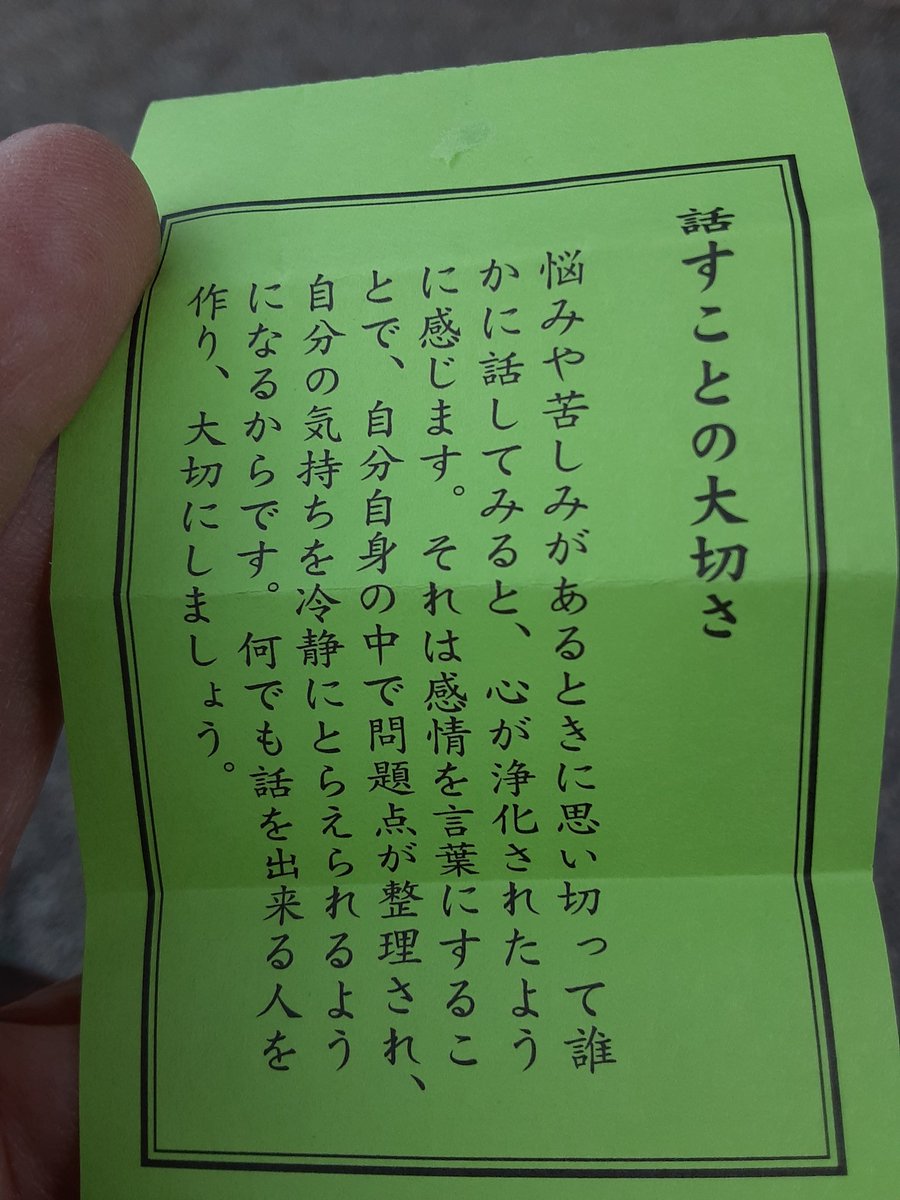 話すことの大切さ
悩みや苦しみがあるときに思い切って誰
かに話してみると、心が浄化されたよう
に感じます。それは感情を言葉にするこ
とで、自分自身の中で問題点が整理され、
自分の気持ちを冷静にとらえられるよう
になるからです。何でも話を出来る人を
作り、大切にしましょう。